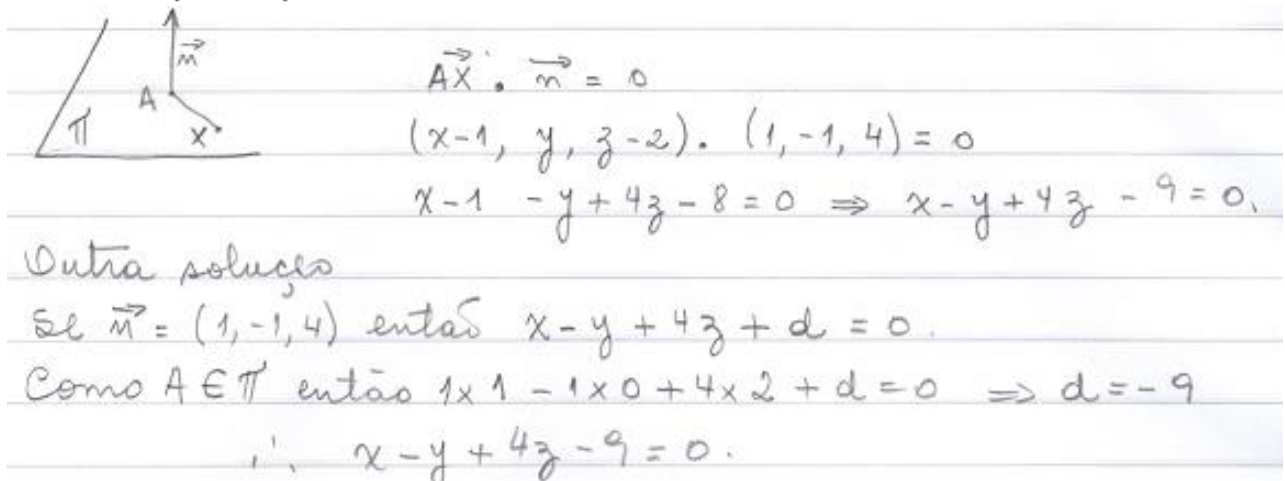 n⃗
A
π
X
AX⃗ . n⃗ = 0
(x-1, y, z-2). (1, -1, 4) = 0
x-1 -y + 4z - 8 = 0 ⇒ x - y + 4z - 9 = 0.
Outra solução
Se n⃗ = (1, -1, 4) então x - y + 4z + d = 0.
Como A ∈ π então 1x1 - 1x0 + 4x2 + d = 0 ⇒ d = -9
∴ x - y + 4z - 9 = 0.